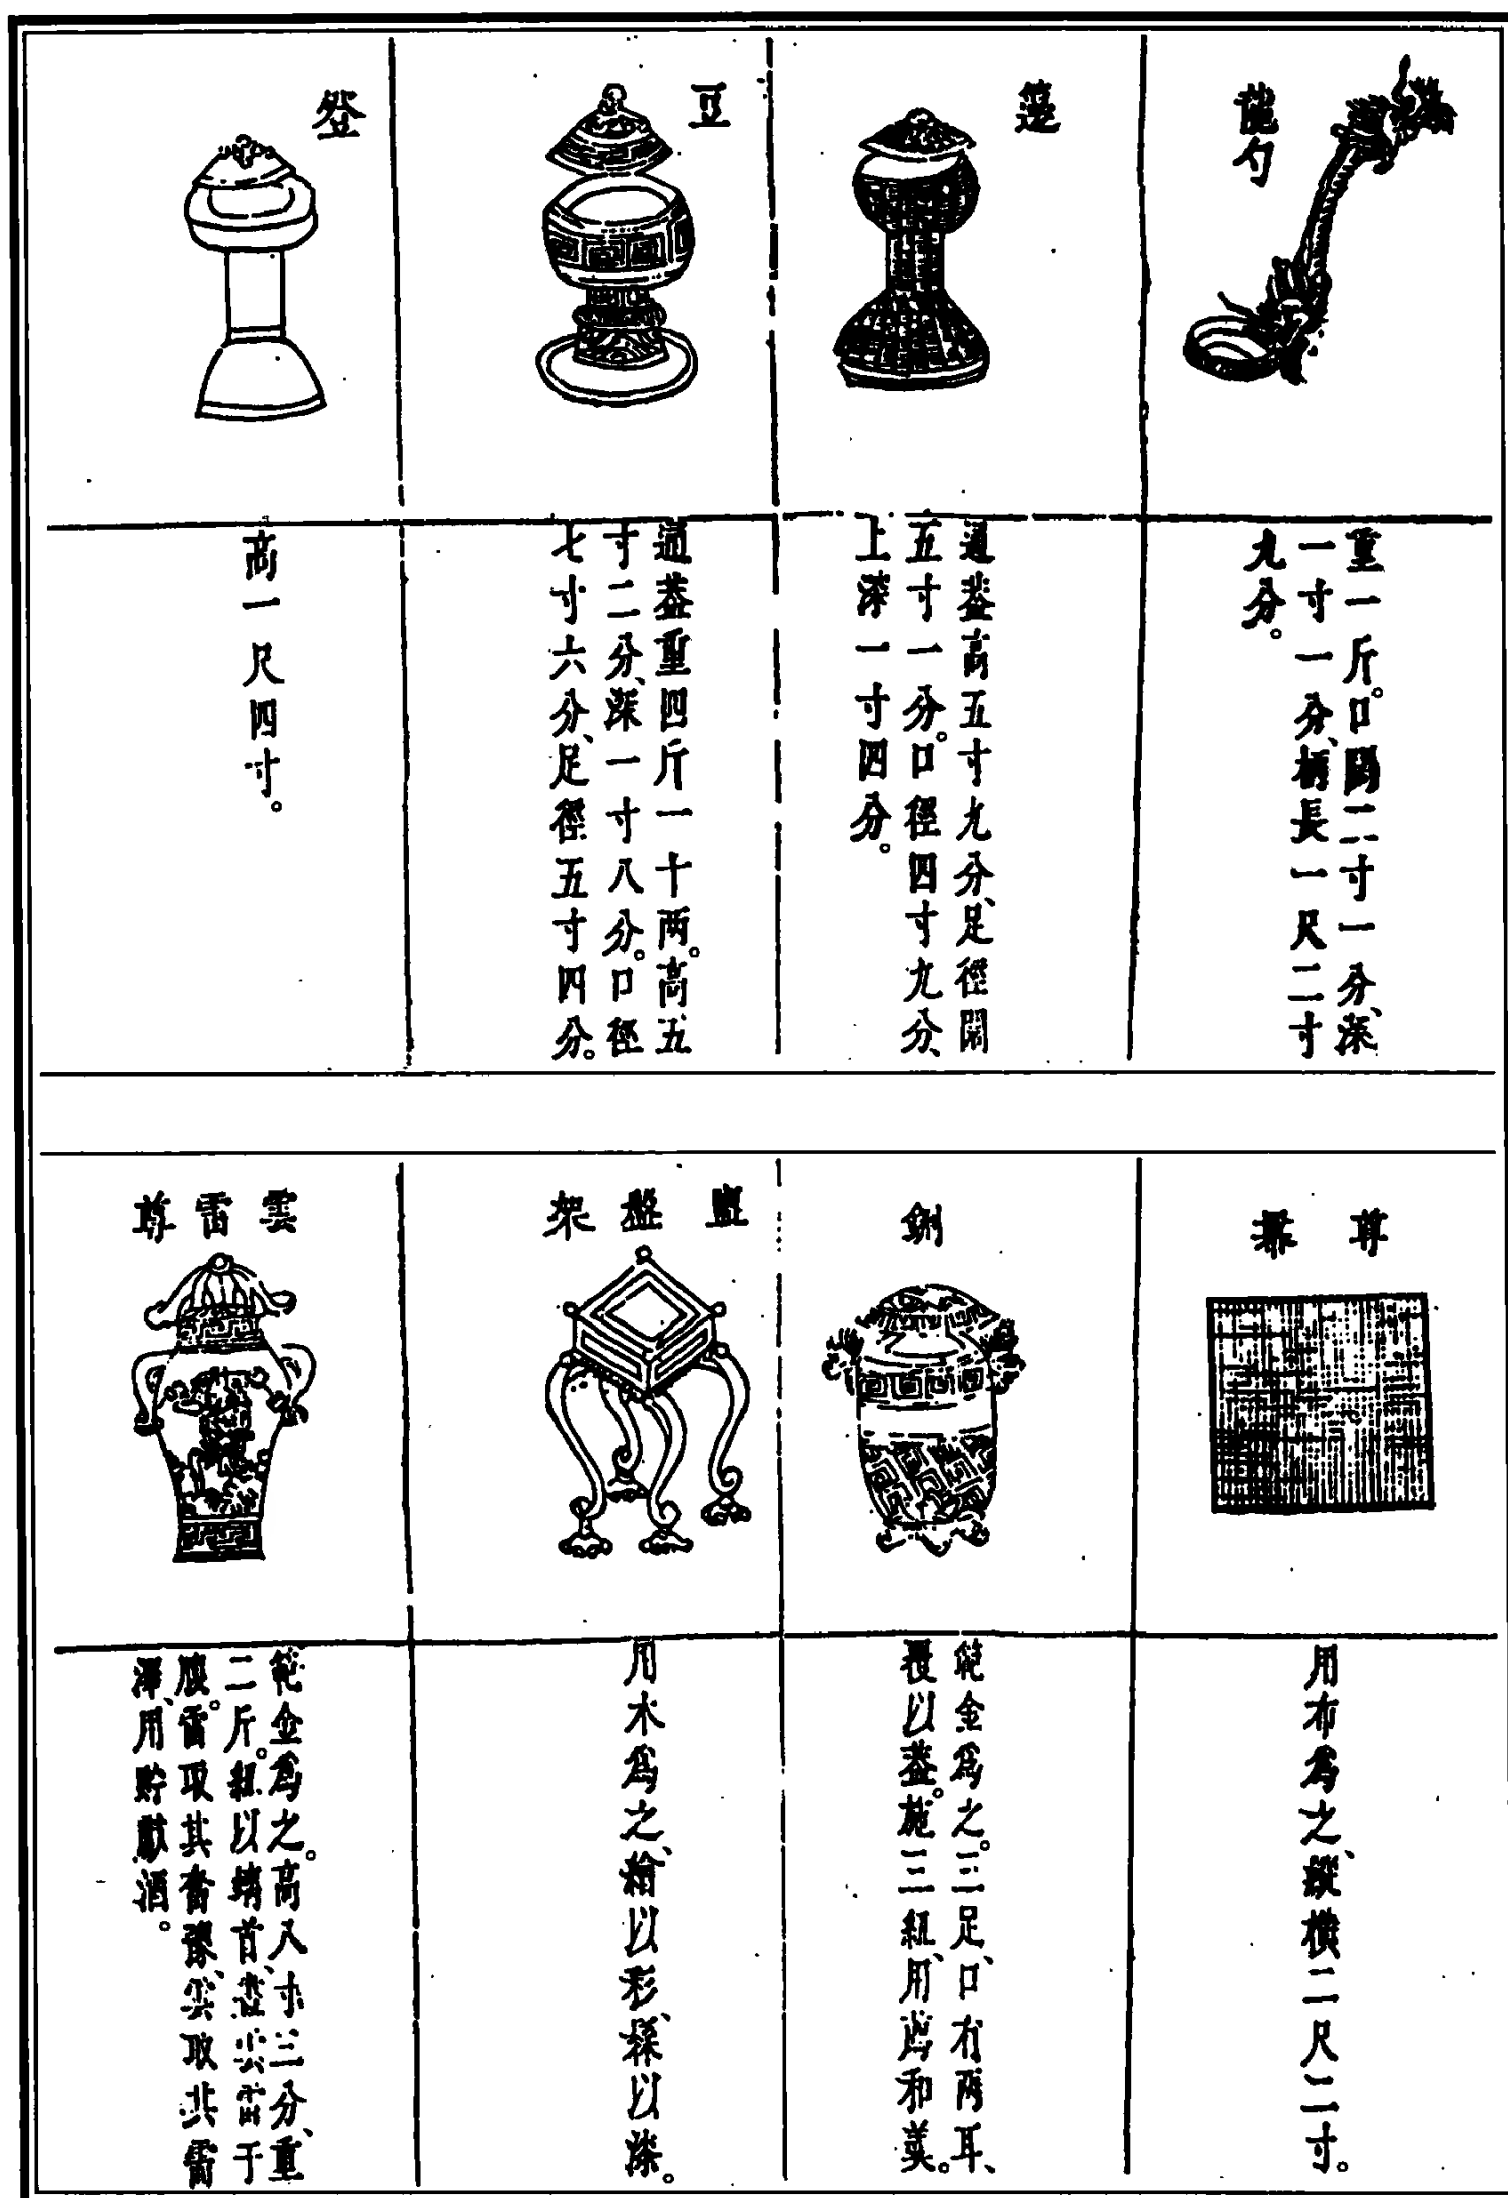 龍勺
重一斤。口闊二寸一分、深
一寸一分、柄長一尺二寸
九分。
籩
通蓋高五寸九分、足徑闊
五寸一分。口徑四寸九分、
上漆一寸四分。
豆
通蓋重四斤一十兩。高五
寸二分、深一寸八分。口徑
七寸六分、足徑五寸四分。
登
高一尺四寸。
尊羃
用布為之、縱橫二尺二寸。
鉶
範金為之。三足、口有兩耳、
覆以蓋。施三紐、用薦和羹。
盥盤架
用木為之、繪以彩、採以漆。
雲雷尊
範金為之。高八寸三分、重
二斤。紐以螭首、畫雲雷于
腹。雷取其奮豫、雲取其需
澤、用貯獻酒。